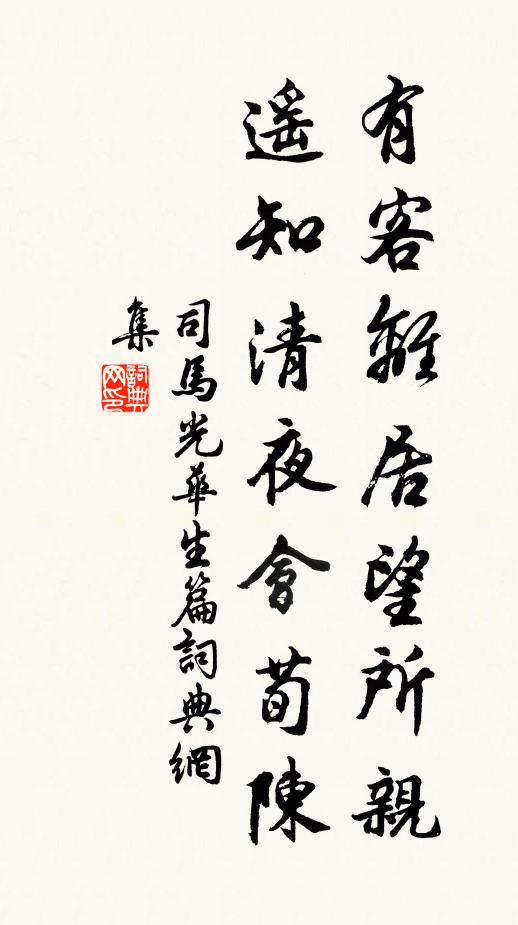 有客離居望所親
遥知清夜會荀陳
司馬光華生篇詞典網
集
詞典
网印